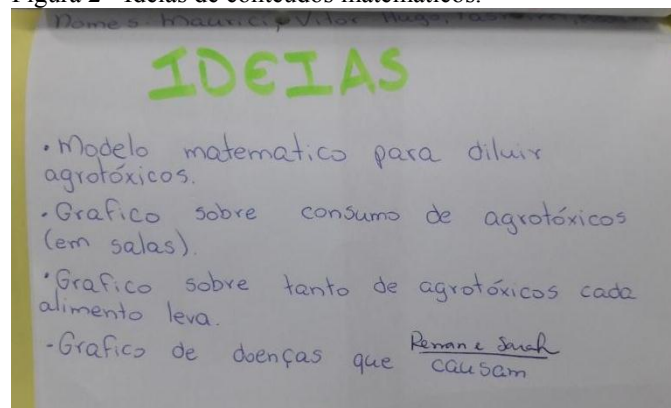 Figura 2 - Ideias de conteúdos matemáticos.
Nomes: Maurici, Vitor Hugo,
IDEIAS
. Modelo matematico para diluir
agrotóxicos.
. Grafico sobre consumo de agrotóxicos
(em salas).
. Grafico sobre tanto de agrotóxicos cada
alimento leva.
- Grafico de doenças que causam
Renan e Sarah